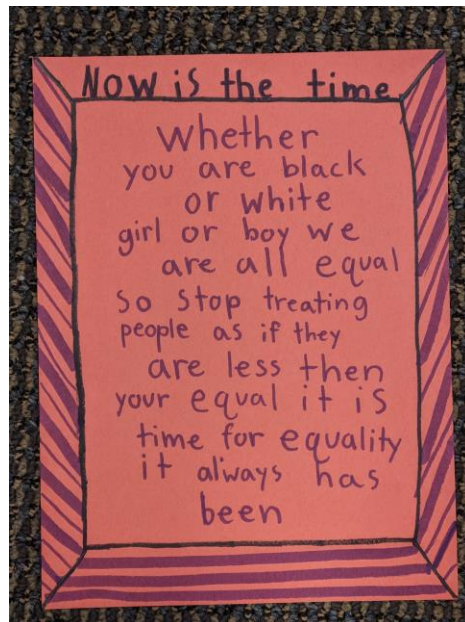 Now is the time.
Whether
you are black
or white
girl or boy we
are all equal
so stop treating
people as if they
are less then
your equal it is
time for equality
it always has
been